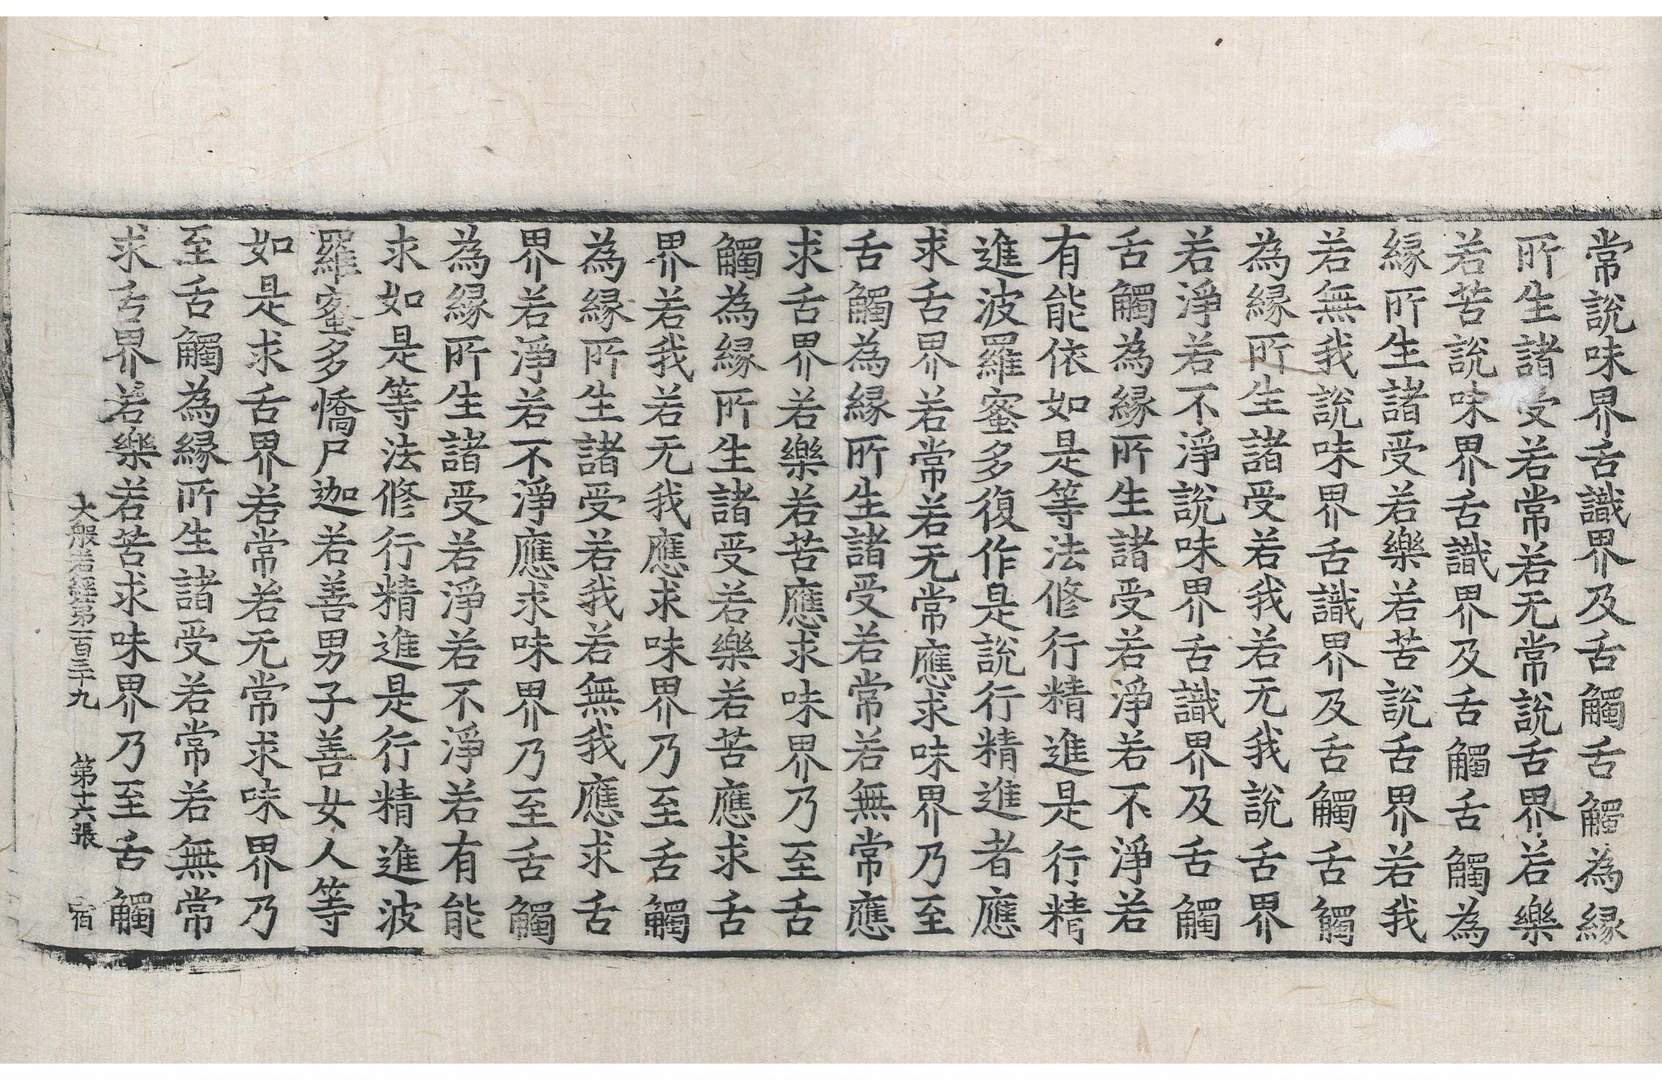 常說味界舌識界及舌觸舌觸為縁
所生諸受若常若无常說舌界若樂
若苦說味界舌識界及舌觸舌觸為
縁所生諸受若樂若苦說舌界若我
若無我說味界舌識界及舌觸舌觸
為縁所生諸受若我若无我說舌界
若淨若不淨說味界舌識界及舌觸
舌觸為縁所生諸受若淨若不淨若
有能依如是等法修行精進是行精
進波羅蜜多復作是說行精進者應
求舌界若常若无常應求味界乃至
舌觸為縁所生諸受若常若無常應
求舌界若樂若苦應求味界乃至舌
觸為縁所生諸受若樂若苦應求舌
界若我若无我應求味界乃至舌觸
為縁所生諸受若我若無我應求舌
界若淨若不淨應求味界乃至舌觸
為縁所生諸受若淨若不淨若有能
求如是等法修行精進是行精進波
羅蜜多憍尸迦若善男子善女人等
如是求舌界若常若无常求味界乃
至舌觸為縁所生諸受若常若無常
求舌界若樂若苦求味界乃至舌觸
大般若經第一百三十九 第十六張 宿